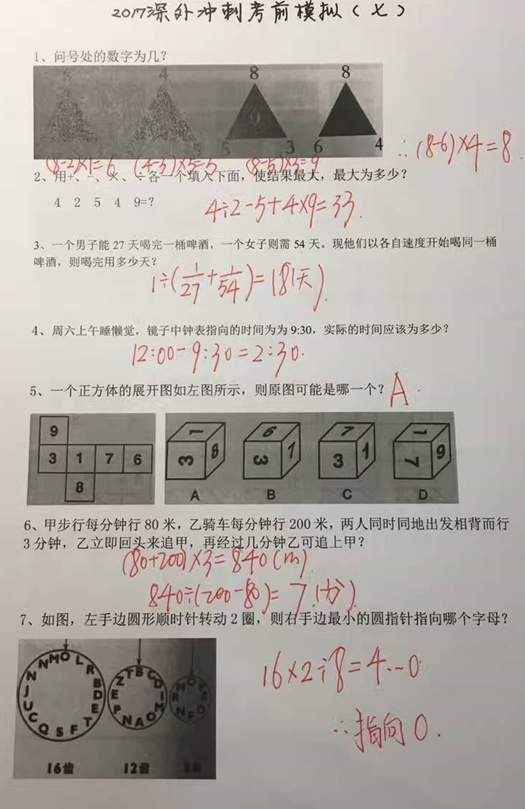 2017深外冲刺考前模拟(七)
1、问号处的数字为几?
4 8 8
3 6 4
(8-2)×1=6 (4-3)×5=5 (8-5)×3=9 ∴(8-6)×4=8
2、用+、-、×、÷各一个填入下面,使结果最大,最大为多少?
4 2 5 4 9=?
4÷2-5+4×9=33.
3、一个男子能 27 天喝完一桶啤酒,一个女子则需 54 天。现他们以各自速度开始喝同一桶
啤酒,则喝完用多少天?
1÷(1/27+1/54)=18(天)
4、周六上午睡懒觉,镜子中钟表指向的时间为为 9:30,实际的时间应该为多少?
12:00-9:30=2:30.
5、一个正方体的展开图如左图所示,则原图可能是哪一个? A.
9
3 1 7 6
8
1 3 8 6 3 1 7 3 1 1 7 6
A B C D
6、甲步行每分钟行 80 米,乙骑车每分钟行 200 米,两人同时同地出发相背而行
3 分钟,乙立即回头来追甲,再经过几分钟乙可追上甲?
(80+200)×3=840(m)
840÷(200-80)=7(分)
7、如图,左手边圆形顺时针转动 2 圈,则右手边最小的圆指针指向哪个字母?
16×2÷8=4…0
∴指向O.
16齿 12齿